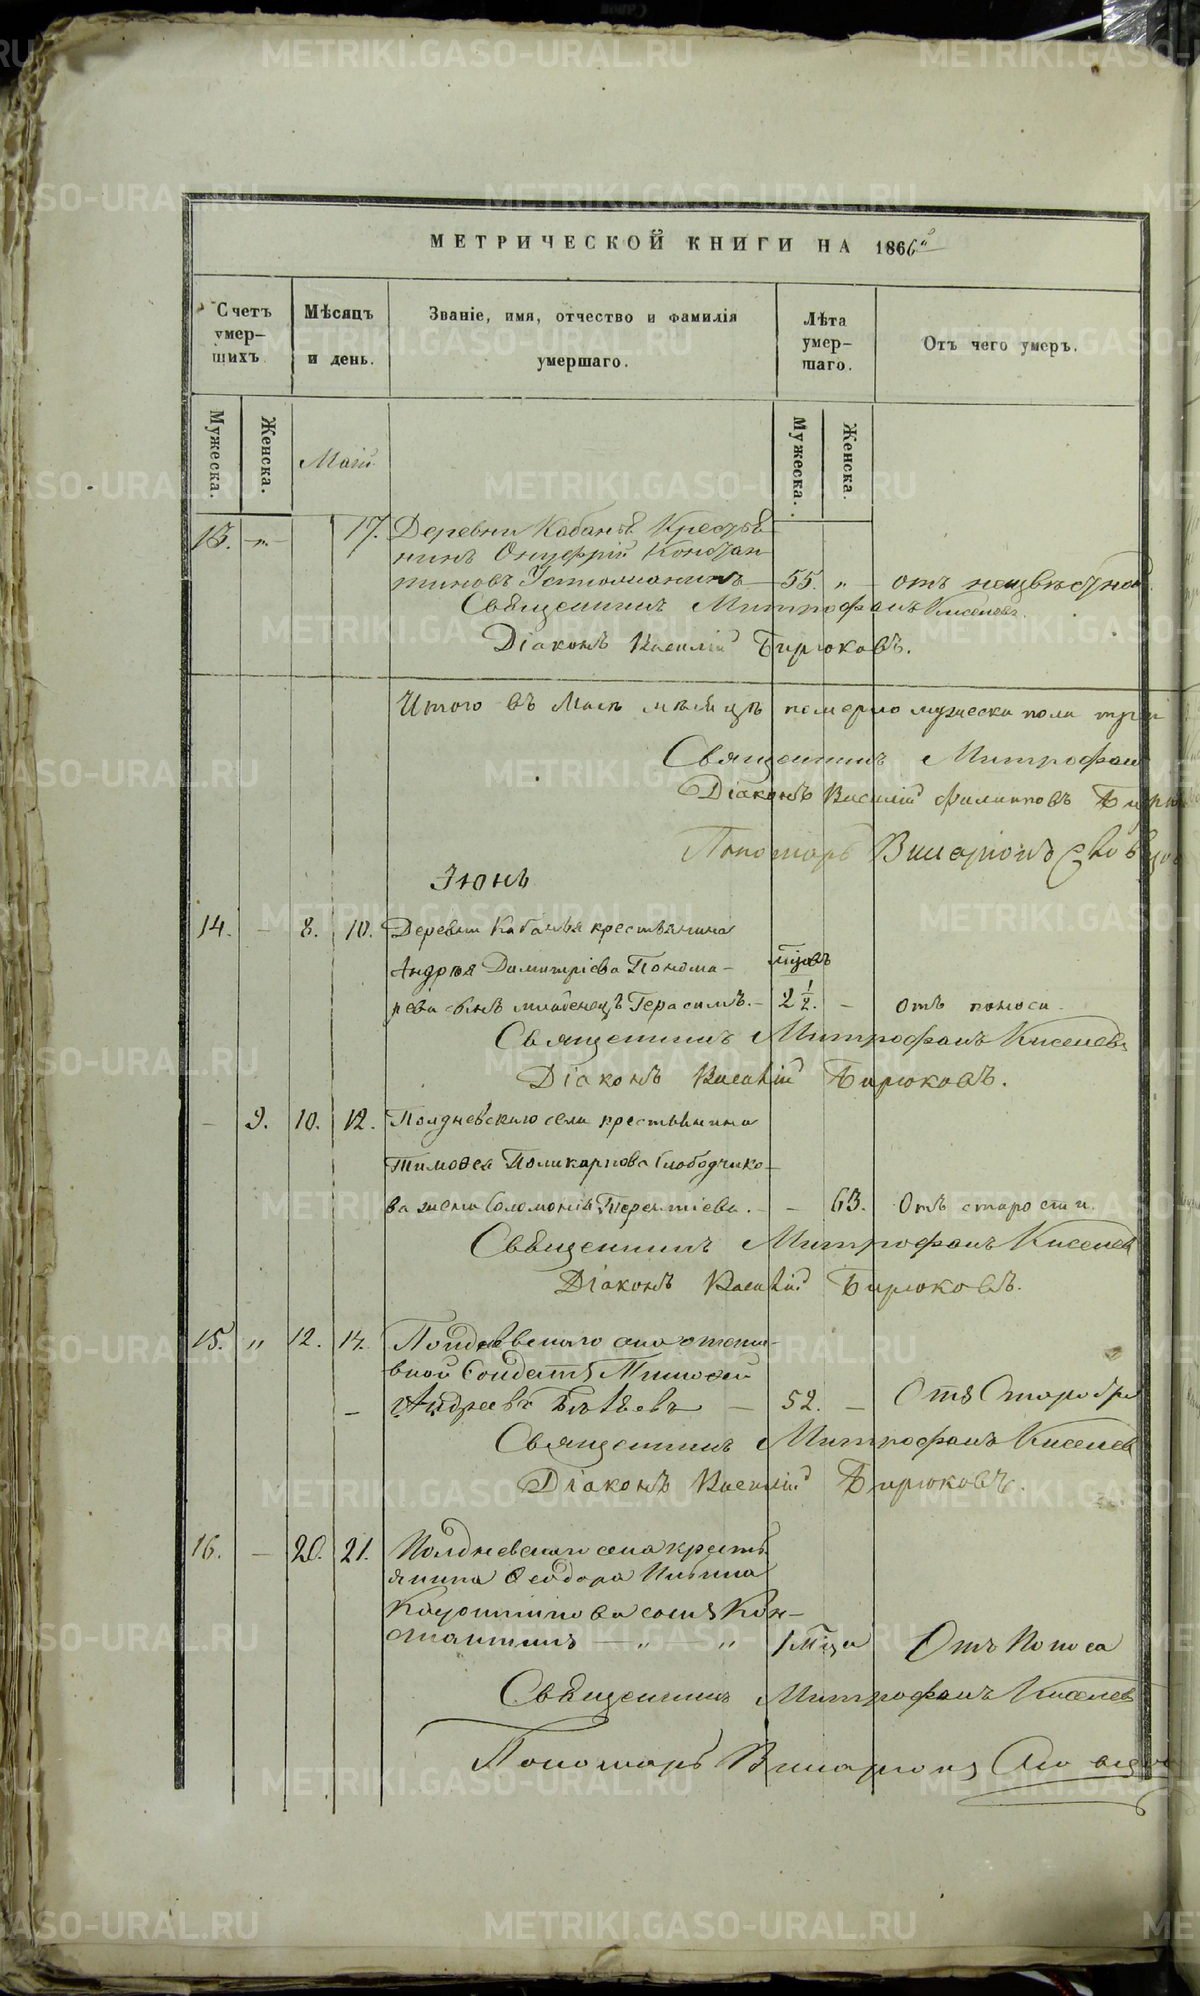 МЕТРИЧЕСКОЙ КНИГИ НА 1866
Счетъ умер-шихъ
Мѣсяцъ и день.
Званіе, имя, отчество и фамилія умершаго.
Лѣта умер-шаго.
Отъ чего умеръ.
Мужеска.
Женска.
Маій
Мужеска.
Женска.
13. 17. Деревни Кабанья Крестья
нинъ Онуфрій Констан
тиновъ 55. " отъ неизвѣстной
Священникъ Митрофанъ Киселевъ.
Діаконъ Василій Бирюковъ.
Итого въ Маѣ мѣсяцѣ померло мужеска пола три
Священникъ Митрофан
Діаконъ Василій Филиповъ Бирю
Пономарь Виларіонъ
Іюнь
14. – 8. 10. Деревни Кабанья крестьянина
Андрея Димитріева Понома–
рева сынъ младенецъ Герасимъ.– мцовъ 2 1/2. – отъ поноса.
Священникъ Митрофанъ Киселевъ
Діаконъ Василій Бирюковъ.
– 9. 10. 12. Полдневскаго села крестьянина
Тимофея Поликарпова Слободчико–
ва жена Соломонія Терентіева. – – 63. Отъ старости.
Священникъ Митрофанъ Киселев
Діаконъ Василій Бирюковъ.
15. " 12. 14. Полдневскаго села отста
вной Солдатъ
– Андреевъ – 52. –
Священникъ Митрофанъ Киселев
Діаконъ Василій Бирюковъ.
16. – 20. 21. Полдневскаго села кресть
янина Ѳеодора
сынъ Кон–
стантинъ – " – " 1 Мца Отъ Поноса
Священникъ Митрофанъ Киселев
Пономарь Виларіонъ
METRIKI.GASO-URAL.RU